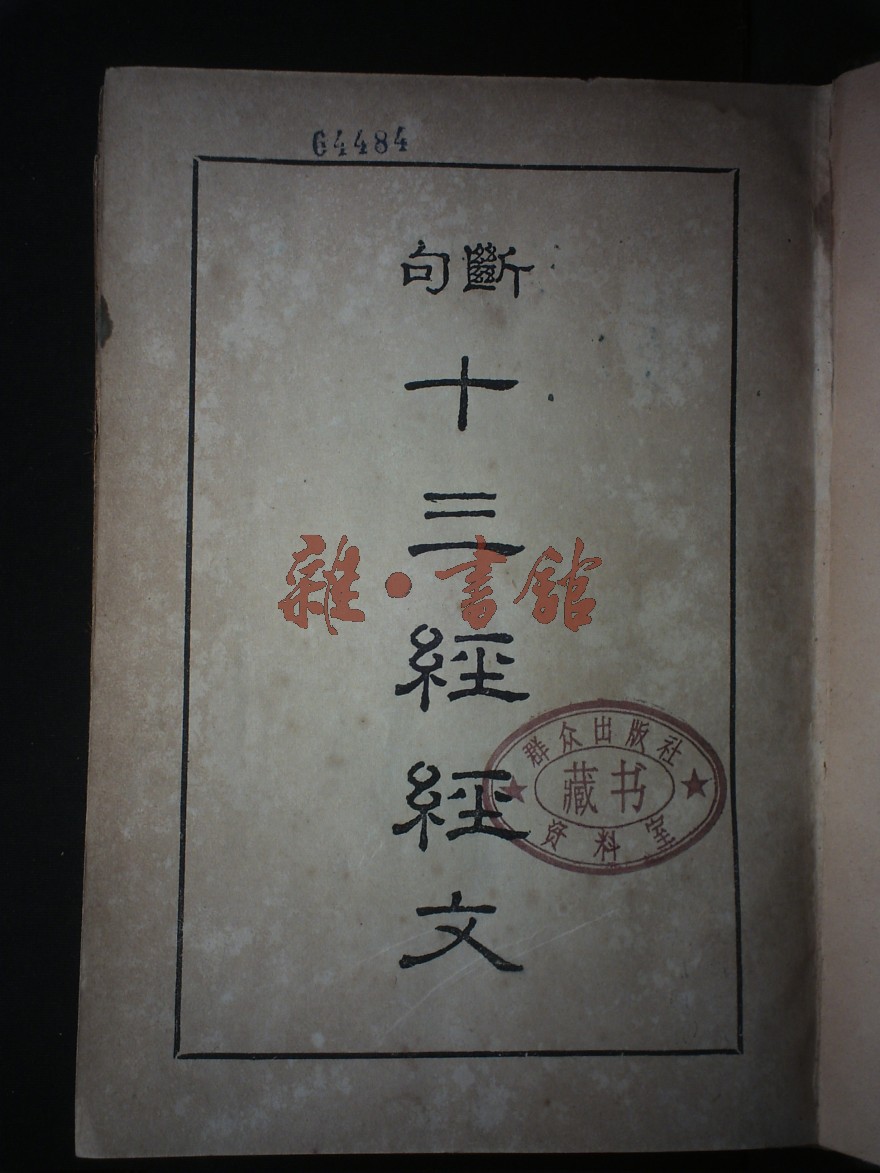 64484
斷句
十三經經文
雜·書館
群众出版社
藏书
资料室